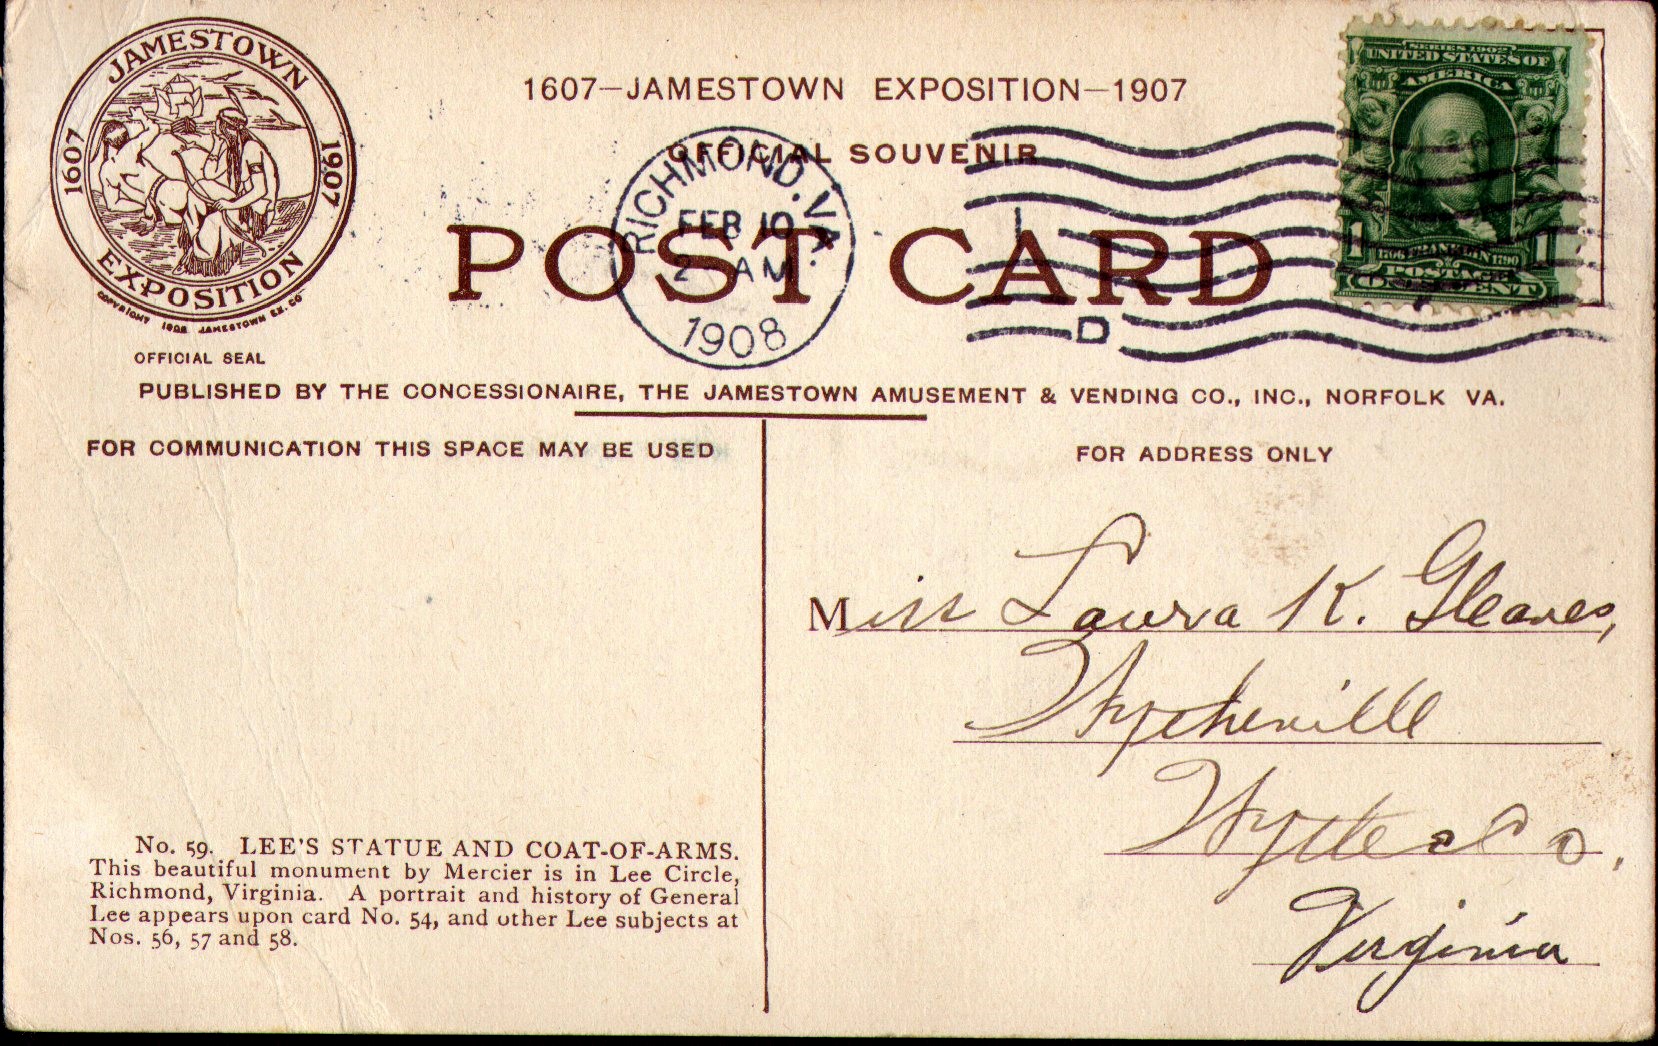 JAMESTOWN
1607 1907
EXPOSITION
COPYRIGHT 1906 JAMESTOWN EX. CO
OFFICIAL SEAL
1607—JAMESTOWN EXPOSITION—1907
OFFICIAL SOUVENIR
POST CARD
RICHMOND, VA.
FEB 10
2 AM
1908
D
SERIES 1902
UNITED STATES OF
AMERICA
1 1
1706 FRANKLIN 1790
POSTAGE
ONE CENT
PUBLISHED BY THE CONCESSIONAIRE, THE JAMESTOWN AMUSEMENT & VENDING CO., INC., NORFOLK VA.
FOR COMMUNICATION THIS SPACE MAY BE USED
FOR ADDRESS ONLY
Miss Laura K. Gleaves,
Wytheville
Wythe Co.
Virginia
No. 59. LEE'S STATUE AND COAT-OF-ARMS.
This beautiful monument by Mercier is in Lee Circle,
Richmond, Virginia. A portrait and history of General
Lee appears upon card No. 54, and other Lee subjects at
Nos. 56, 57 and 58.